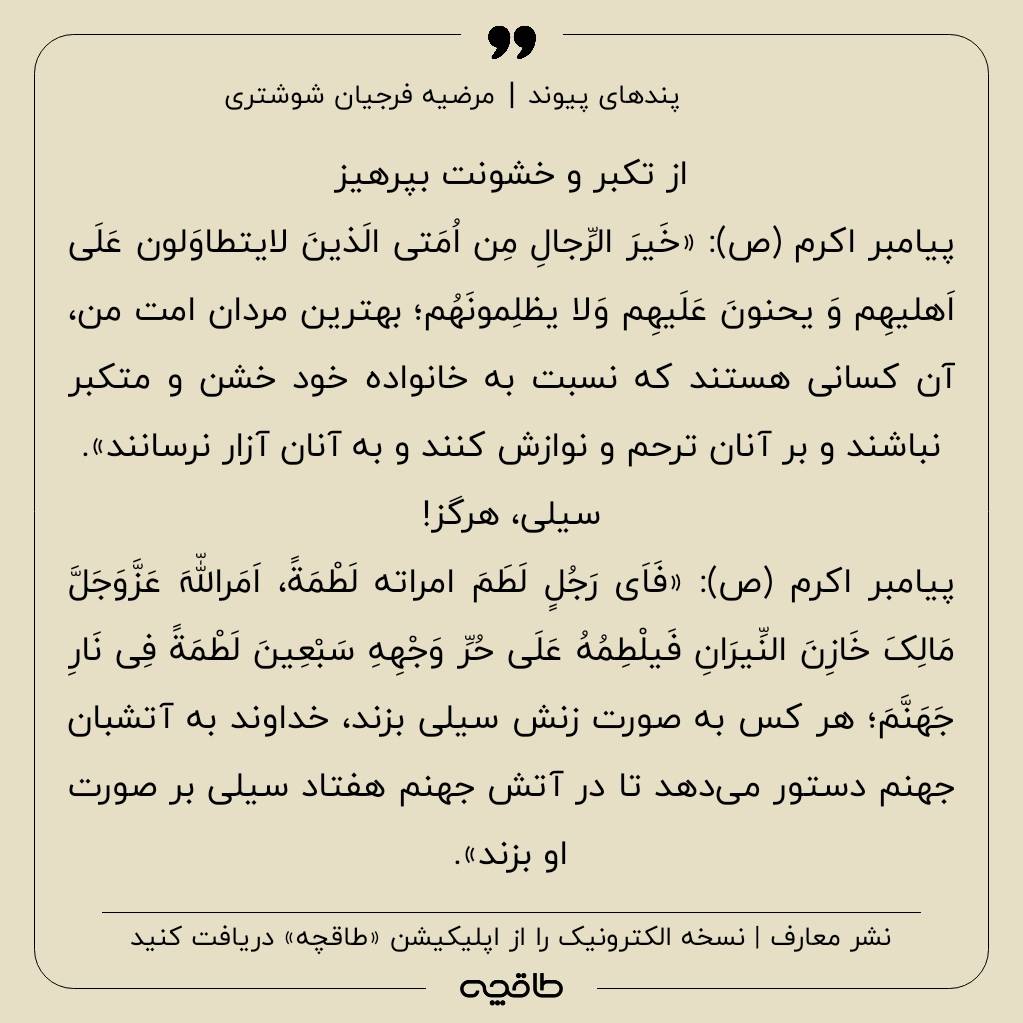 پندهای پیوند | مرضیه فرجیان شوشتری
از تکبر و خشونت بپرهیز
پیامبر اکرم (ص): «خَیرَ الرِّجالِ مِن اُمَتی الَذینَ لایتطاوَلون عَلَی
اَهلیهِم وَ یحنونَ عَلَیهِم وَلا یظلِمونَهُم؛ بهترین مردان امت من،
آن کسانی هستند که نسبت به خانواده خود خشن و متکبر
نباشند و بر آنان ترحم و نوازش کنند و به آنان آزار نرسانند».
سیلی، هرگز!
پیامبر اکرم (ص): «فَاَی رَجُلٍ لَطَمَ امراته لَطْمَةً، اَمَراللّهَ عَزَّوَجَلَّ
مَالِکَ خَازِنَ النِّیرَانِ فَیلْطِمُهُ عَلَی حُرِّ وَجْهِهِ سَبْعِینَ لَطْمَةً فِی نَارِ
جَهَنَّمَ؛ هر کس به صورت زنش سیلی بزند، خداوند به آتشبان
جهنم دستور می‌دهد تا در آتش جهنم هفتاد سیلی بر صورت
او بزند».
نشر معارف | نسخه الکترونیک را از اپلیکیشن «طاقچه» دریافت کنید
طاقچه